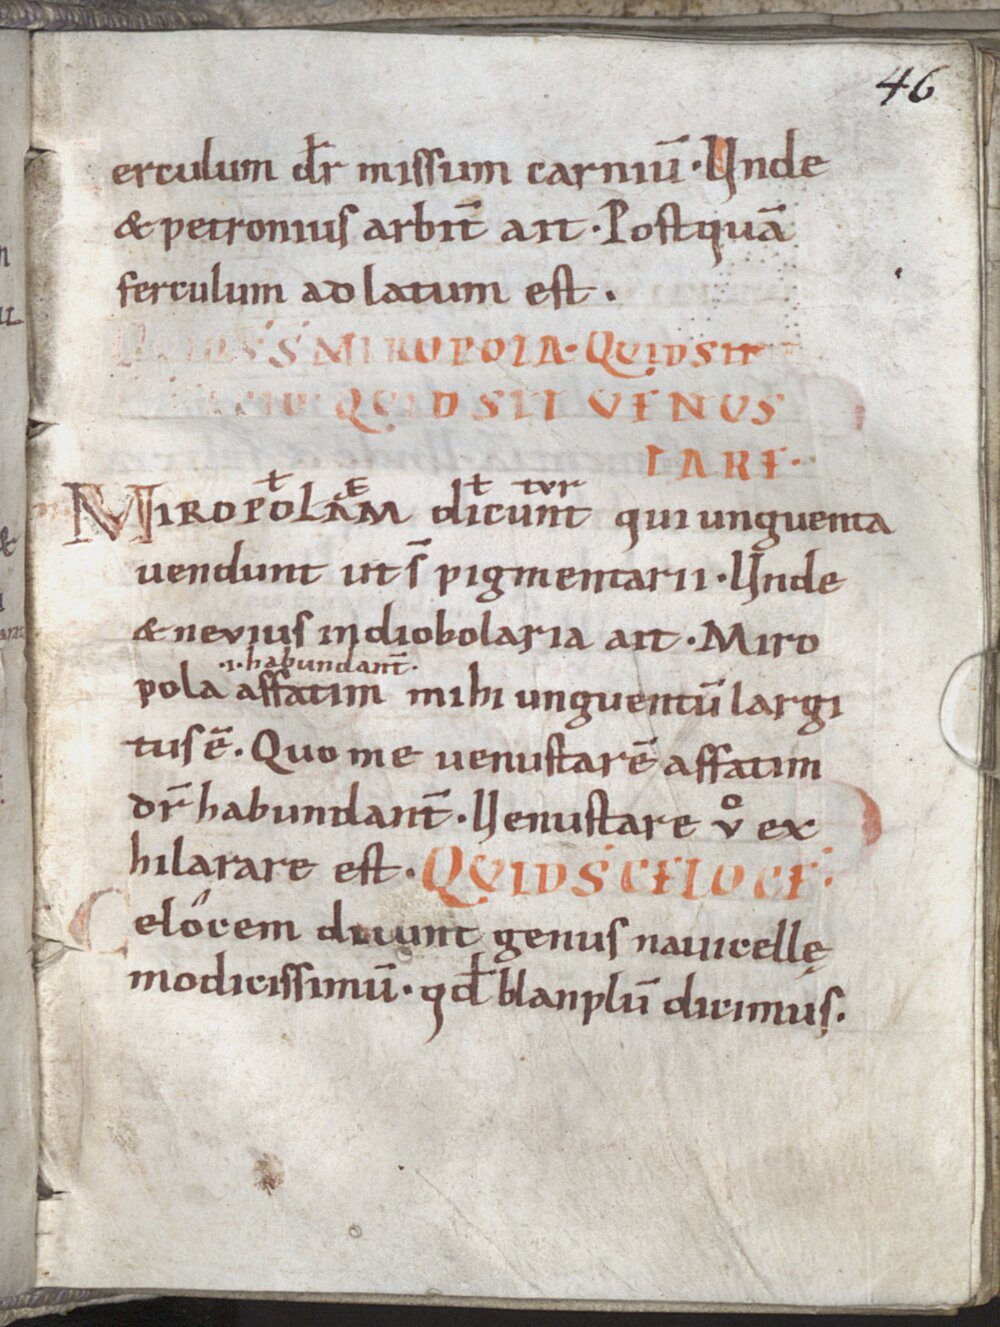 46
erculum dr̄ missum carniū· Unde
& petronius arbit̄ ait· Postquā
ferculum adlatum est.
S MIROPOLA· QUID SIT
QUID SIT VENUS
TARE·
MIROPOLAM dicunt qui unguenta
uendunt ut s̄ pigmentarii· Unde
& nevius in diobolaria ait· Miro
·i· habundant̄·
pola affatim mihi unguentū largi
tus ē. Quo me uenustarē affatim
dr̄ habundant̄· Uenustare v̊ ex
hilarare est. QUID S̄ CELOCE·
Celócem dicunt genus nauicellę
modicissimū· qd̄ blanplū dicimus.